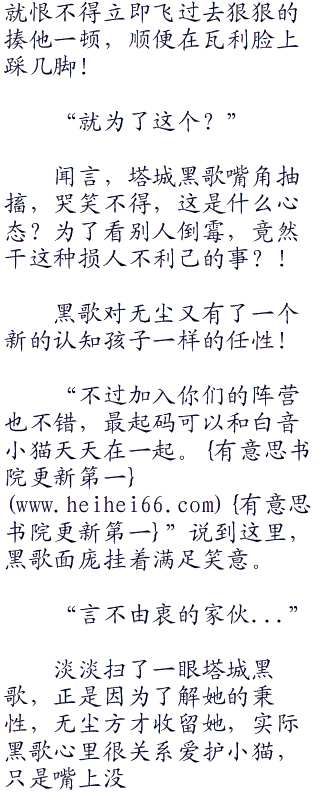 就恨不得立即飞过去狠狠的
揍他一顿，顺便在瓦利脸上
踩几脚！
“就为了这个？”
闻言，塔城黑歌嘴角抽
搐，哭笑不得，这是什么心
态？为了看别人倒霉，竟然
干这种损人不利己的事？！
黑歌对无尘又有了一个
新的认知孩子一样的任性！
“不过加入你们的阵营
也不错，最起码可以和白音
小猫天天在一起。{有意思书
院更新第一}
(www.heihei66.com){有意思
书院更新第一}”说到这里，
黑歌面庞挂着满足笑意。
“言不由衷的家伙...”
淡淡扫了一眼塔城黑
歌，正是因为了解她的秉
性，无尘方才收留她，实际
黑歌心里很关系爱护小猫，
只是嘴上没